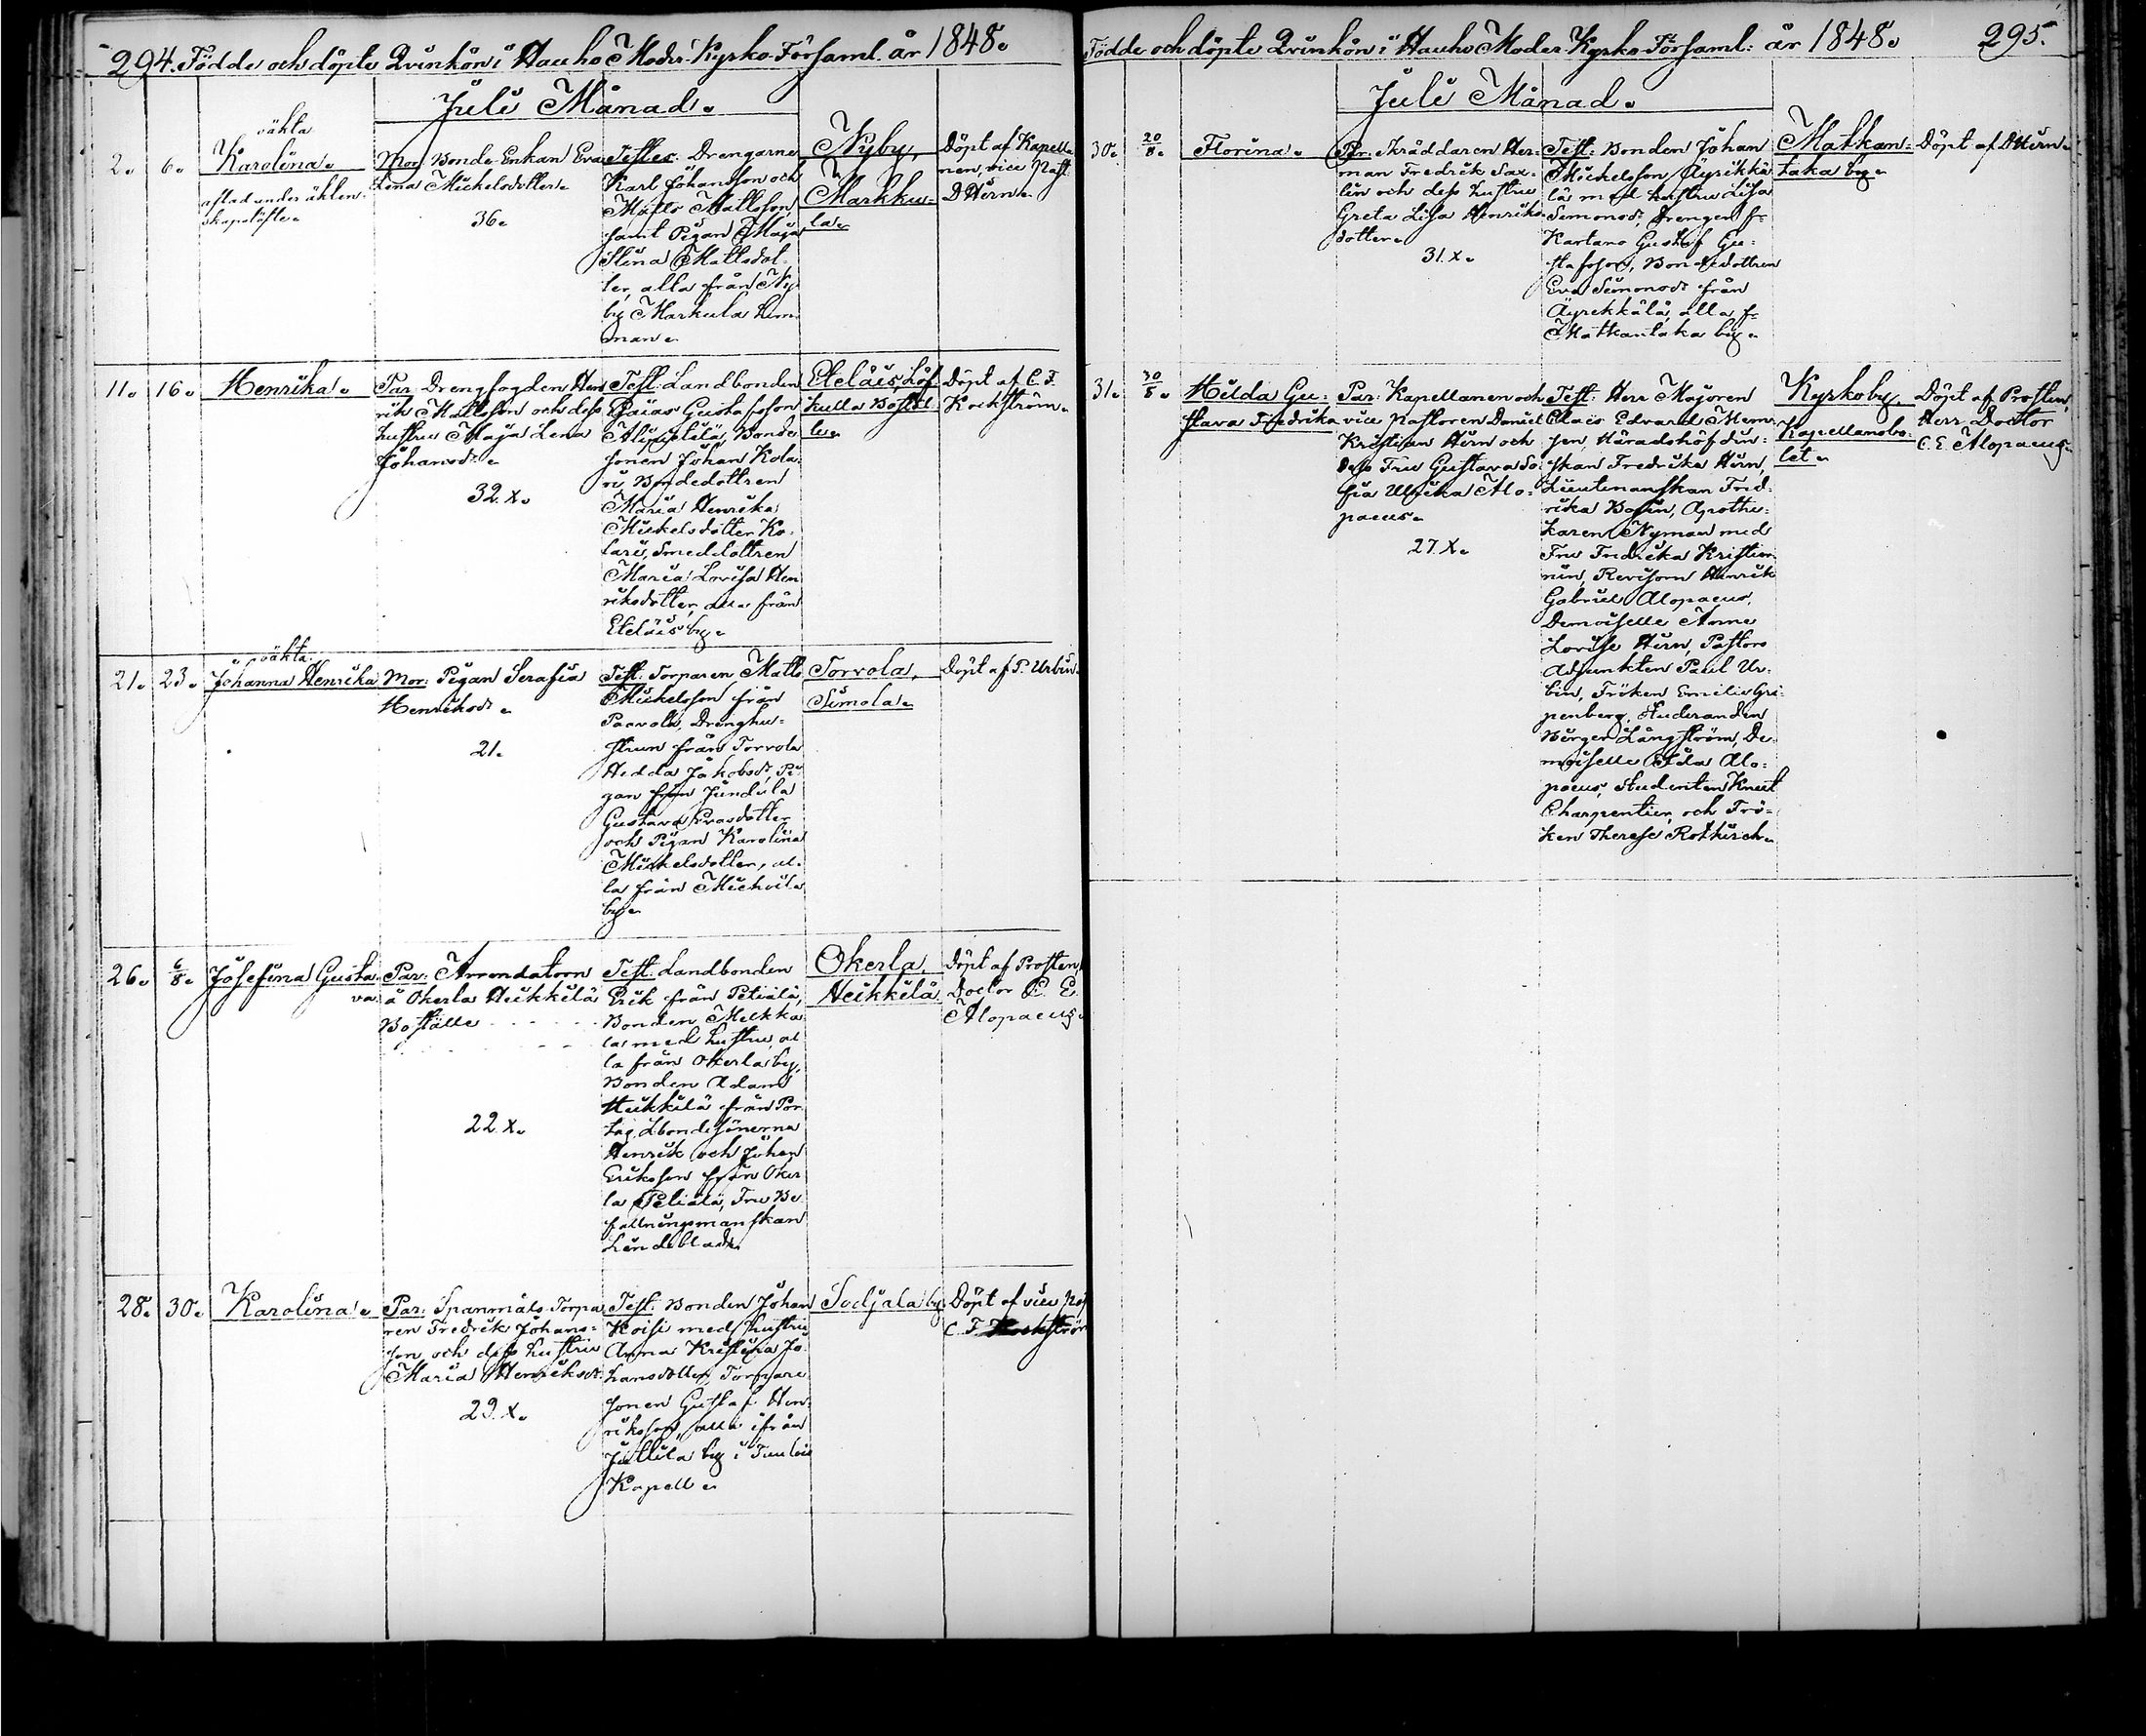 294. Födde och döpte Qvinkön i Hauho Moder Kyrko Församl. år 1848.
Juli Månad.
2. 6.
oäkta
Karolina.
aflad under äkten-
skapslöfte.
Mor Bonde Enkan Eva
Lena Mickelsdotter.
36.
Testes: Drengarne
Karl Johansson och
Matts Mattsson,
samt Pigan Maja
Stina Mattsdot-
ter, alla från Ny-
by Markula hem-
man.
Nyby,
Markku-
la.
Döpt af Kapella-
nen, vice Past.
D Hirn.
11. 16. Henrika.
Par Drengfogden Hen
rik Mattsson och dess
hustru Maja Lena
Johansdr.
32. X.
Test. Landbonden
Gustafsson
Alipietilä, Bonde
sonen Johan Kola-
ri, Bondedottren
Maria Henrika
Mickelsdotter Ko-
lari, Smeddottren
Maria Lovisa Hen
riksdotter, alla från
Eteläis by.
Eteläis, Löf
kulla Bostäl
le.
Döpt af C. F.
Kockström.
21. 23.
oäkta.
Johanna Henrika
Mor: Pigan Serafia
Henriksdr.
21.
Test. Torparen Matts
Mickelsson från
Paavola, Drenghu-
strun från Torvola
Hedda Jakobsdr, Pi
gan från Jundila
Gustava Evasdotter
och Pigan Karolina
Mickelsdotter, al-
la från Miehoila
by.
Torvola,
Simola.
Döpt af P. Urbin.
26. 6/8. Josefina Gusta
va.
Par: Arrendatorn
å Okerla Heikkilä
Boställe - - - - -
22 X.
Test. Landbonden
Erik från Petiälä,
Bonden Meikka
la med hustru, al
la från Okerla by,
Bonden Adam
Heikkilä från Por
tas, Lbondesönerna
Henrik och Johan
Eriksson från Oker
la Petiälä, Fru Be
fallningsmanskan
Lindeblad.
Okerla
Heikkilä
Döpt af Prosten,
Doctor C. E.
Alopaeus.
28. 30. Karolina.
Par: Spanmåls Torpa
ren Fredrik Johans-
son och dess hustru
Maria Henriksdr.
29. X.
Test. Bonden Johan
Hoisi med hustru
Anna Kristina Jo-
hansdotter, Torpare
sonen Gustaf Hen-
riksson, alla ifrån
Juttila by i Tulois
Kapell.
Sodjala by.
Döpt af vice
C. F. Kockström
Födde och döpte Qvinkön i Hauho Moder Kyrko Församl: år 1848. 295.
Juli Månad.
30. 20/8. Florina.
Par: Skräddaren Her-
man Fredrik Sax-
lin och dess hustru
Greta Lisa Henriks-
dotter.
31. X.
Test: Bonden Johan
Mickelsson Äyrikkä-
lä med hustru Lisa
Simonsdr, Drengen fr
Kartano Gustaf Gu-
stafsson, Bondedottren
Eva Simonsdr från
Äyrikkälä, alla fr
Matkantaka by.
Matkan-
taka by.
Döpt af D Hirn.
31. 20/8. Hilda Gu-
stava Fredrika
Par: Kapellanen och
vice Pastoren Daniel
Kristian Hirn och
dess Fru Gustava So-
fia Ulrika Alo-
paeus.
27. X.
Test: Herr Majoren
Claës Edvard Mem-
sen, Häradshöfdin-
skan Fredrika Hirn,
Lieutenanskan Fred-
rika Bosin, Apothe-
karen Nyman med
Fru Fredrika Kristier-
nin, Revisorn Henrik
Gabriel Alopaeus,
Demoiselle Anne
Lovise Hirn, Pastors
Adjunkten Paul Ur-
bin, Fröken Emilie Gri-
penberg, Studeranden
Birger Långström, De-
moiselle Alo-
paeus, Studenten Knut
Charpentier och Frö-
ken Therese Rotkirch.
Kyrkoby
Kapellansbo-
let.
Döpt af Prosten,
Herr Doctor
C. E. Alopaeus.